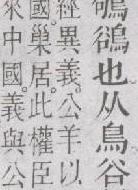 鴝鵒也从鳥谷
經異義。公羊以
國巢居。此權臣
來中國。義與公